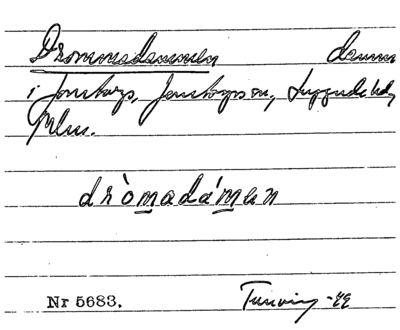 Drommedammen damm
i Jonstorps, Jonstorps sn, Luggude hd,
Mlm.
dròmadámen
Nr 5683. Tuvin -49